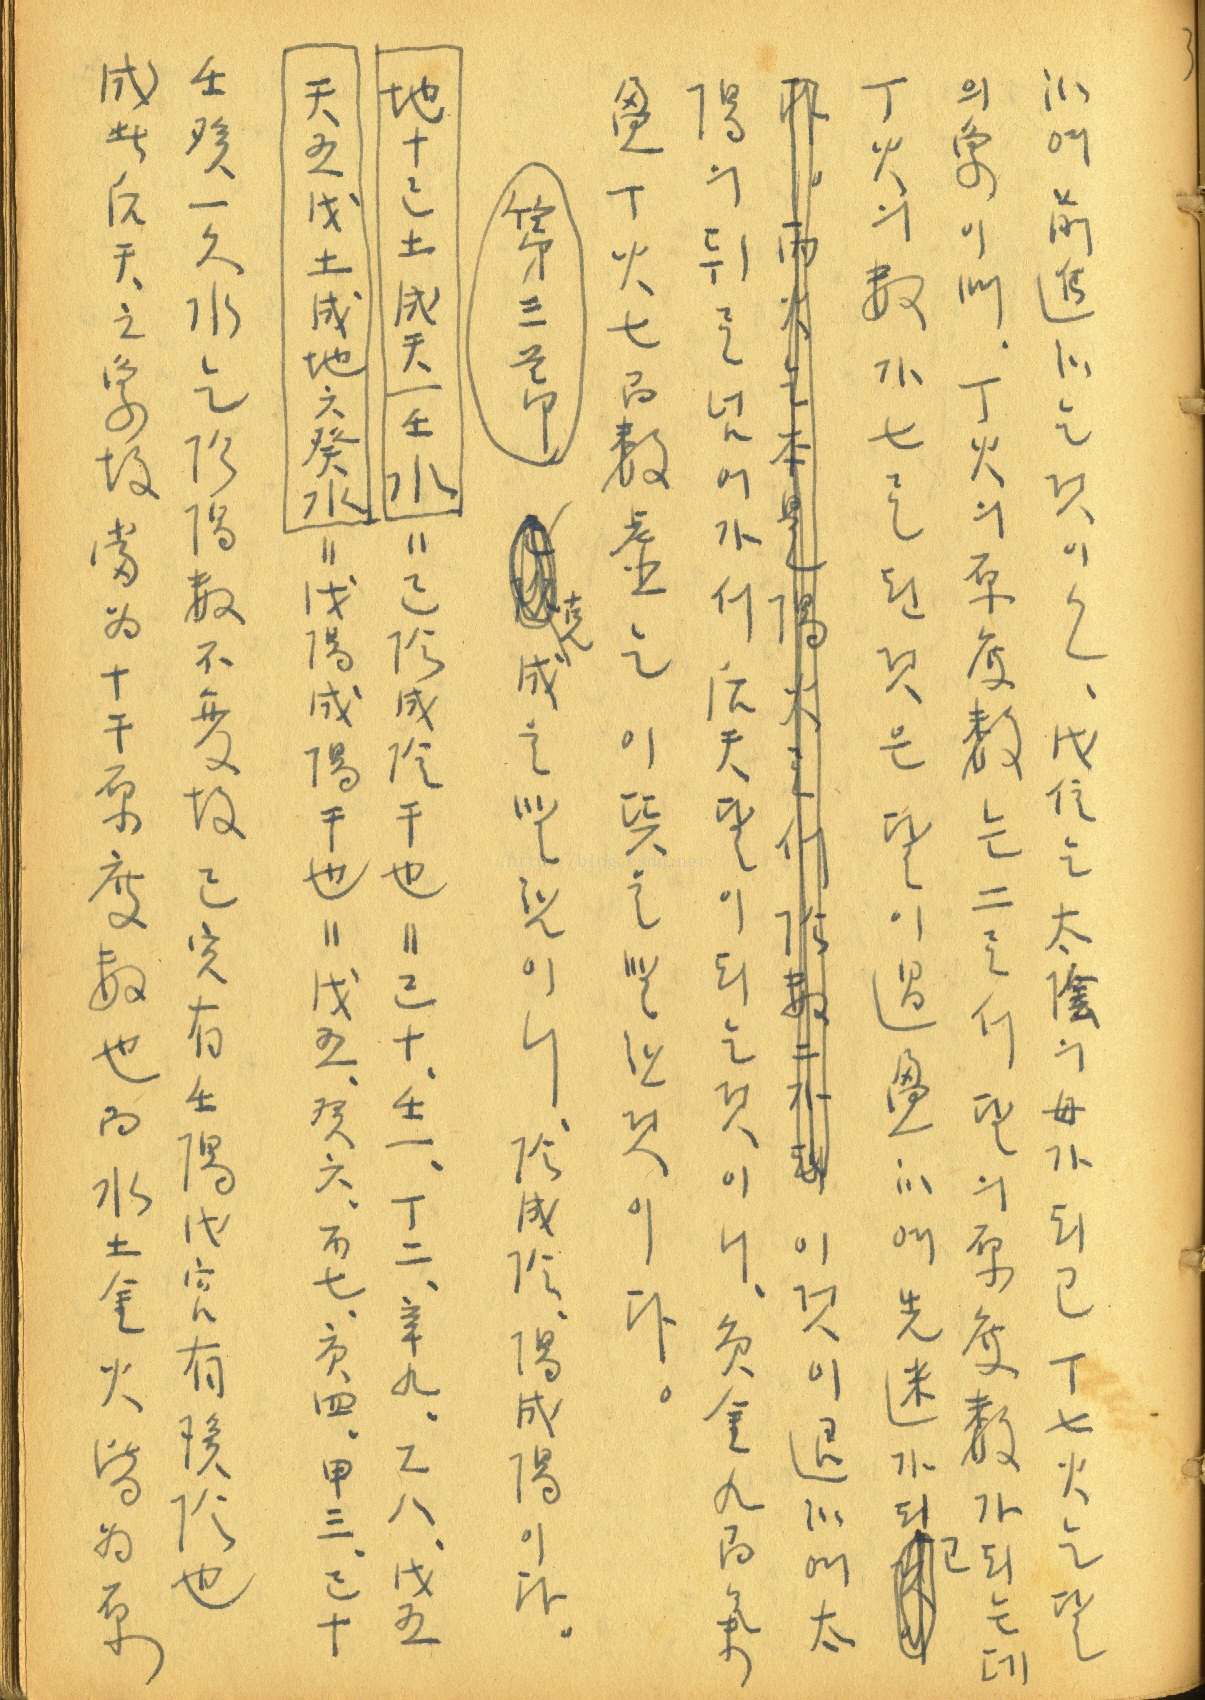 3
하여 前進하는 것이오、戊位는 太陰의 母가 되고 丁七火는 달
의 象이며. 丁火의 原度數는 二로서 달의 原度數가 되는데
丁火의 數가 七로 된 것은 달이 過盈하여 先迷가 되고
이것이 退하여 太
陽의 뒤로 넘어가서 后天달이 되는 것이니、負金九而氣
盈丁火七而數虛는 이 뜻을 말한 것이다。
第三節
成을 이니、陰成陰、陽成陽이다。
地十己土成天一壬水 = 己陰成陰干也 = 己十、壬一、丁二、辛九、乙八、戊五
天五戊土成地六癸水 = 戊陽成陽干也 = 戊五、癸六、丙七、庚四、甲三、己十
壬癸一六水는 陰陽數不變故 己宮有壬陽 戊宮有癸陰也
成此后天之象故 當为十干原度數也 而水土金火 皆为原